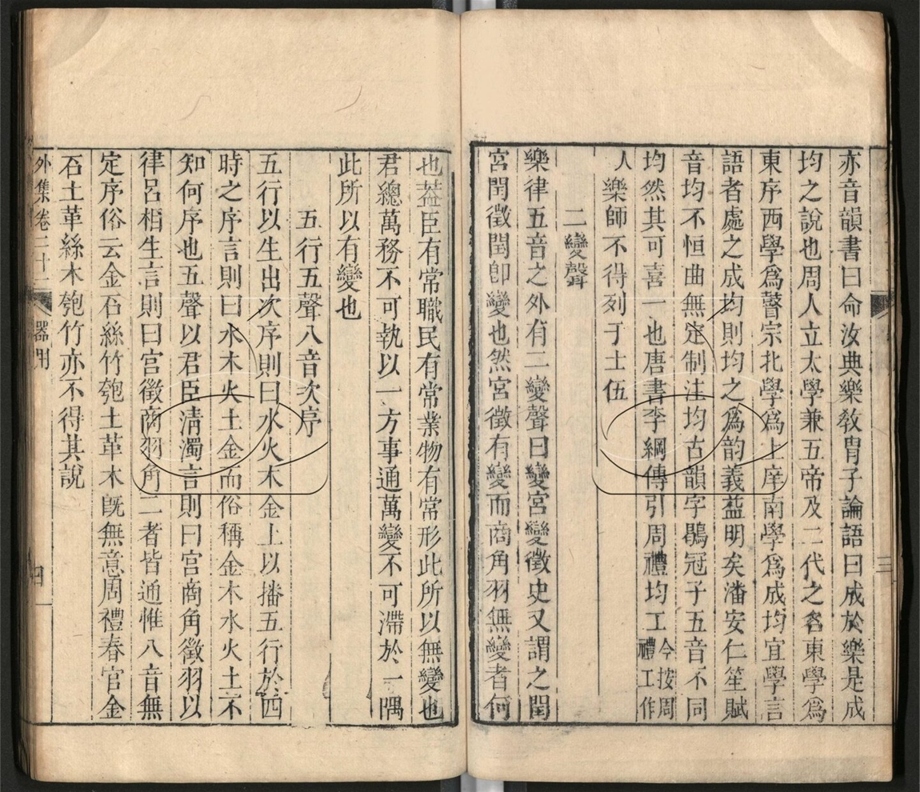 亦音韻書曰命汝典樂敎胄子論語曰成於樂是成
均之說也周人立太學兼五帝及二代之名東學爲
東序西學爲瞽宗北學爲上庠南學爲成均宜學言
語者處之成均則均之爲韵義葢明矣潘安仁笙賦
音均不恒曲無定制注均古韻字鶡冠子五音不同
均然其可喜一也唐書李綱傳引周禮均工今按周禮工作
人樂師不得列于士伍
二變聲
樂律五音之外有二變聲曰變宮變徵史又謂之閏
宮閏徵閏卽變也然宮徵有變而商角羽無變者何
也葢臣有常職民有常業物有常形此所以無變也
君總萬務不可執以一方事通萬變不可滯於一隅
此所以有變也
五行五聲八音次序
五行以生出次序則曰水火木金土以播五行於四
時之序言則曰木火土金而俗稱金木水火土不
知何序也五聲以君臣清濁言則曰宮商角徵羽以
律呂相生言則曰宮徵商羽角二者皆通惟八音無
定序俗云金石絲竹匏土革木旣無意周禮春官金
石土革絲木匏竹亦不得其說
外集卷二十二 器用 四